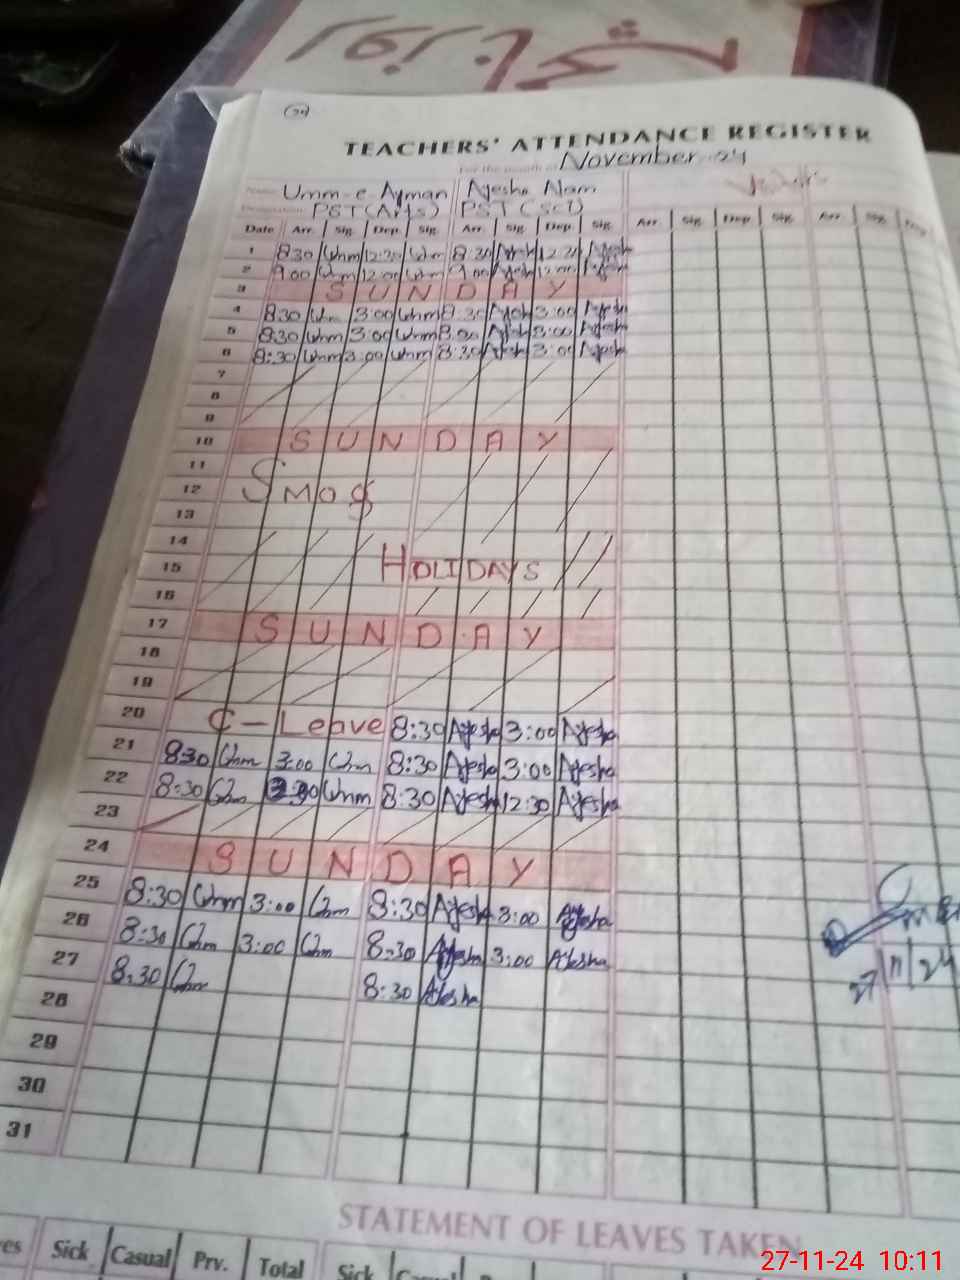 TEACHERS' ATTENDANCE REGISTER
For the month of November 24
Name Umm-e-Ayman Ayesha Alam
Designation PST(Arts) PST(Sci)
Date Arr. Sig. Dep. Sig. Arr. Sig. Dep. Sig. Arr. Sig. Dep. Sig. Arr. Sig.
1 8:30 Umm 12:30 Umm 8:30 Ayesh 12:30 Ayesh
2 9:00 Umm 12:00 Umm 9:00 Ayesh 12:00 Ayesh
3 SUNDAY
4 8:30 Um 3:00 Umm 8:30 Ayesh 3:00 Ayesh
5 8:30 Umm 3:00 Umm 8:30 Ayesh 3:00 Ayesh
6 8:30 Umm 3:00 Umm 8:30 Ayesh 3:00 Ayesh
7
8
9
10 SUNDAY
11
12 SMOG
13
14
15 HOLIDAYS
16
17 SUNDAY
18
19
20 C-Leave 8:30 Ayesha 3:00 Ayesha
21 8:30 Umm 3:00 Umm 8:30 Ayesha 3:00 Ayesha
22 8:30 Umm Umm 8:30 Ayesha 12:30 Ayesha
23
24 SUNDAY
25 8:30 Umm 3:00 Umm 8:30 Ayesha 3:00 Ayesha
26 8:30 Umm 3:00 Umm 8:30 Ayesha 3:00 Ayesha
27 8:30 Umm 8:30 Ayesha
27/11/24
28
29
30
31
STATEMENT OF LEAVES TAKEN
Sick Casual Prv. Total Sick Casual
27-11-24 10:11